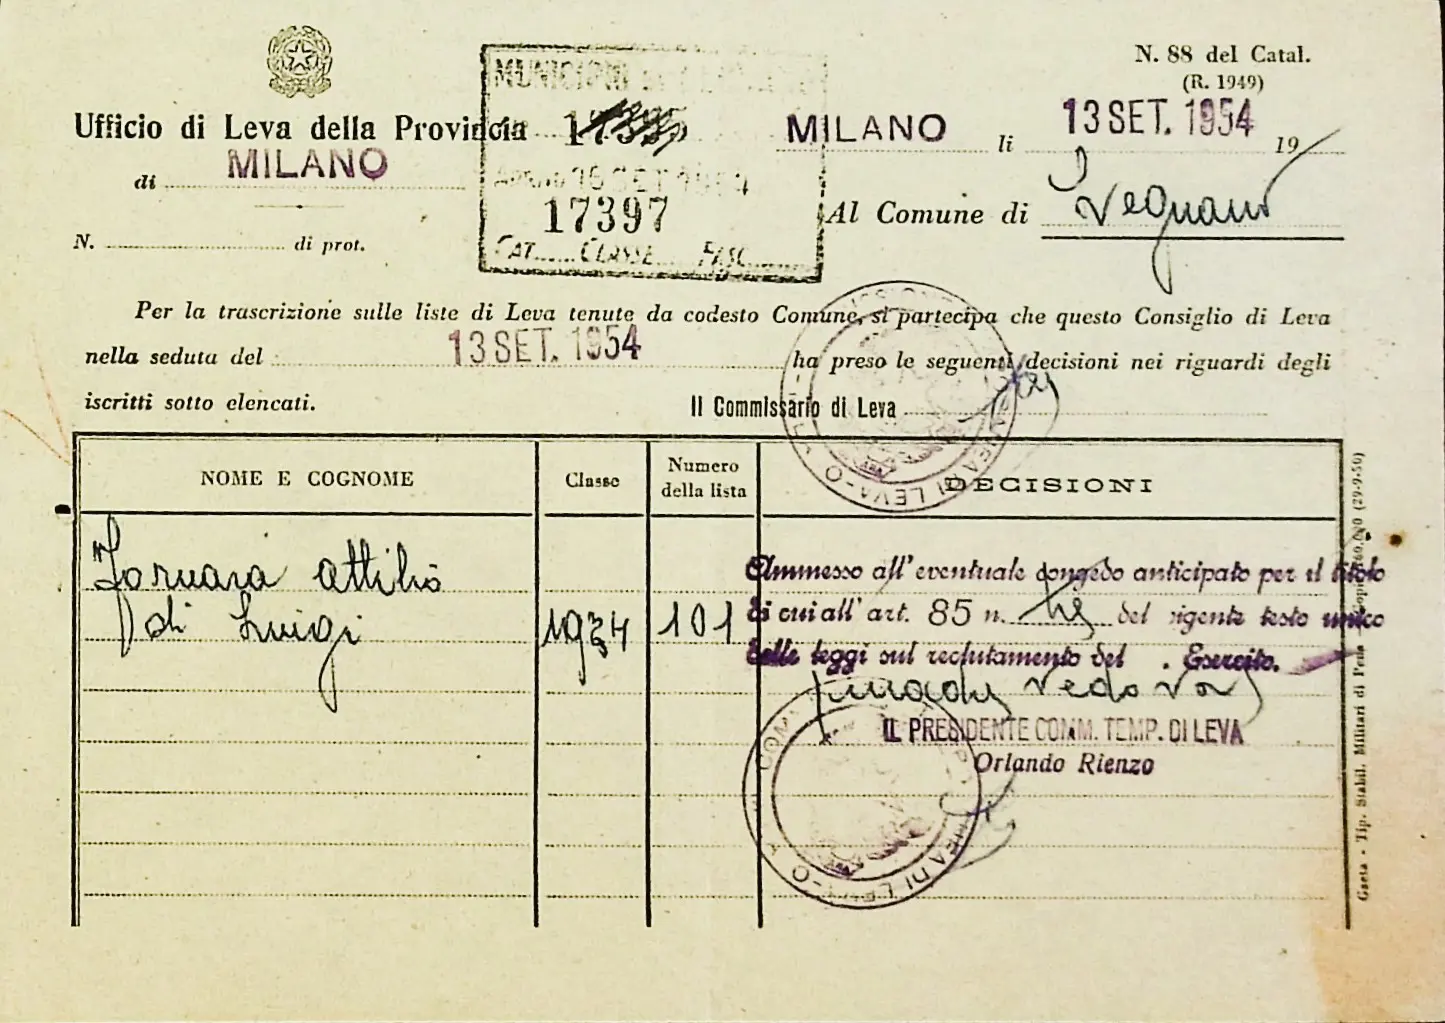 N. 88 del Catal.
(R. 1949)
Ufficio di Leva della Provincia
di MILANO
N. di prot.
MUNICIPIO
17397
CAT. CLASSE FASC.
MILANO li 13 SET. 1954 19
Al Comune di Legnano
Per la trascrizione sulle liste di Leva tenute da codesto Comune, si partecipa che questo Consiglio di Leva
nella seduta del 13 SET. 1954 ha preso le seguenti decisioni nei riguardi degli
iscritti sotto elencati.
Il Commissario di Leva
NOME E COGNOME Classe Numero della lista DECISIONI
Fornara Attilio
di Luigi 1934 101
Ammesso all'eventuale congedo anticipato per il titolo
di cui all'art. 85 n. del vigente testo unico
delle leggi sul reclutamento del Esercito.
madre vedova
IL PRESIDENTE COMM. TEMP. DI LEVA
Orlando Rienzo
Gaeta - Tip. Stabil. Militari di Pena (29-9-50)